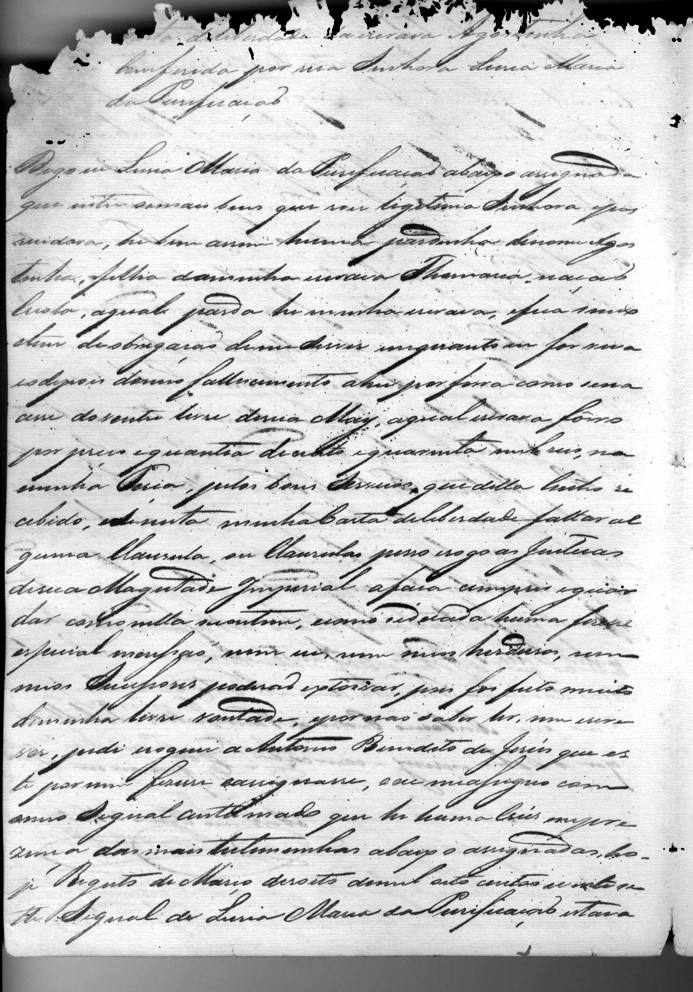 Carta de liberdade da escrava Agostinha
Conferida por sua Senhora Luzia Maria
da Purificacaõ
Digo eu Luzia Maria da Purificacaõ abaixo assignada
que entre os mais bens que sou legitima Senhora e pos
suidora, he bem assim huma pardinha de nome Agos
tinha, filha da minha escrava Thomazia, nacaõ
Costa, aqual parda he minha escrava, e fica
de obrigacaõ de me servir enquanto eu for viva
e depois de meu fallecimento ahei por forra como se na
cesse do ventre livre de sua May, aqual escrava fôrro
por preco e quantia de cento e quarenta mil reis, na
minha Terca, pelos bons Servicos, que della tenho re
cebido, e se nesta minha Carta de liberdade faltar al
guma Clausula, ou Clausulas peco e rogo as Justicas
de sua Magestade Imperial a faca cumprir e guar
dar como nella se contem, e como se de cada huma fizesse
especial mensaõ, nem eu, nem meus herdeiros, nem
meus Sucessores poderaõ, pois foi feito muito
de minha livre vontade, e por naõ saber ler, nem escre
ver, pedi e roguei a Antonio Benedito de Jesús que es
te por mim fizesse e assignasse, e eu me assigno com
o meo Signal custumado que he huma Crús em pre
zenca das mais testemunhas abaixo assignadas, ho-
je de Março de oito de mil oito centos e vinte se
te Signal de Luzia Maria da Purificacaõ estava